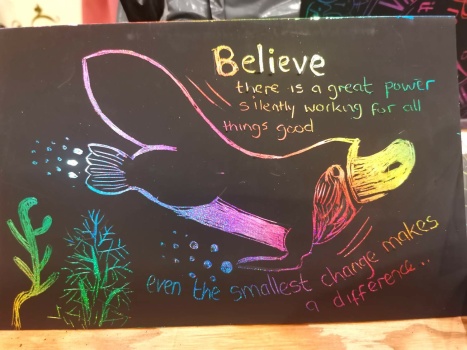 Believe
there is a great power
silently working for all
things good
even the smallest change makes
a difference...